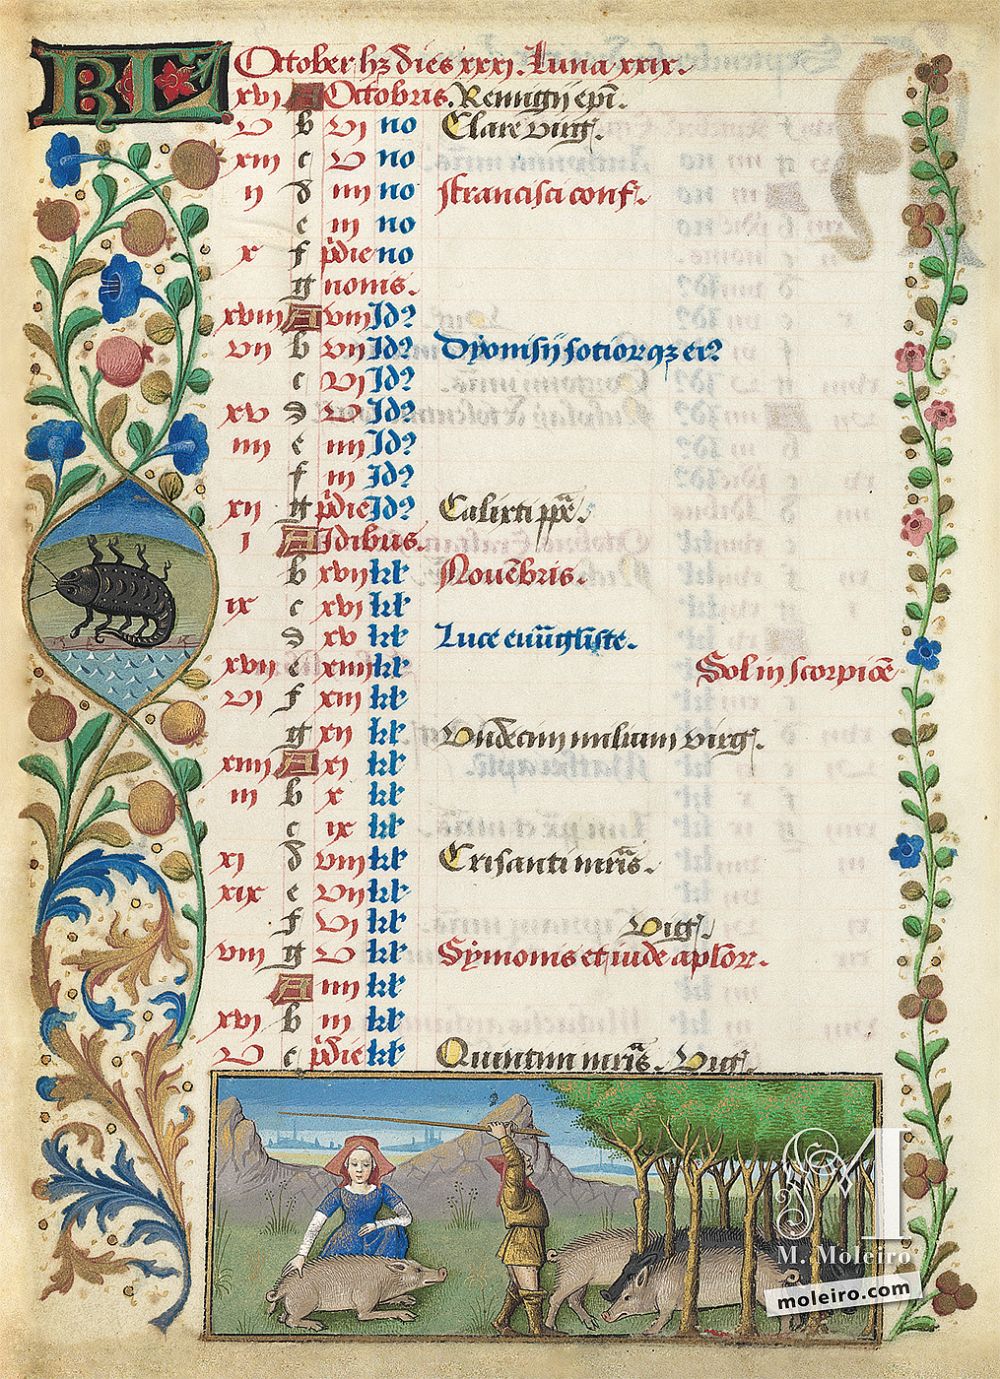 KL October hz dies xxxi. Luna xxix.
xvi A Octobris. Remigij epi.
v b vi no Clare virg.
xiii c v no
ii d iiii no Francisci conf.
e iii no
x f pdie no
g nonis.
xviii A viii Id
vii b vii Id Dyonisij sotiorqz ei
c vi Id
xv d v Id
iiii e iiii Id
f iii Id
xii g pdie Id Calixti pp.
i A Idibus.
b xvii kl Nouebris.
ix c xvi kl
d xv kl Luce euuangliste.
xvii e xiiii kl Sol in scorpioe
vi f xiii kl
g xii kl Undecim milium virg.
xiiii A xi kl
iii b x kl
c ix kl
xi d viii kl Crisanti mris.
xix e vii kl
f vi kl Vig.
viii g v kl Symonis et iude aplor.
A iiii kl
xvi b iii kl
v c pdie kl Quintini mris. Vig.
M
M. Moleiro
moleiro.com